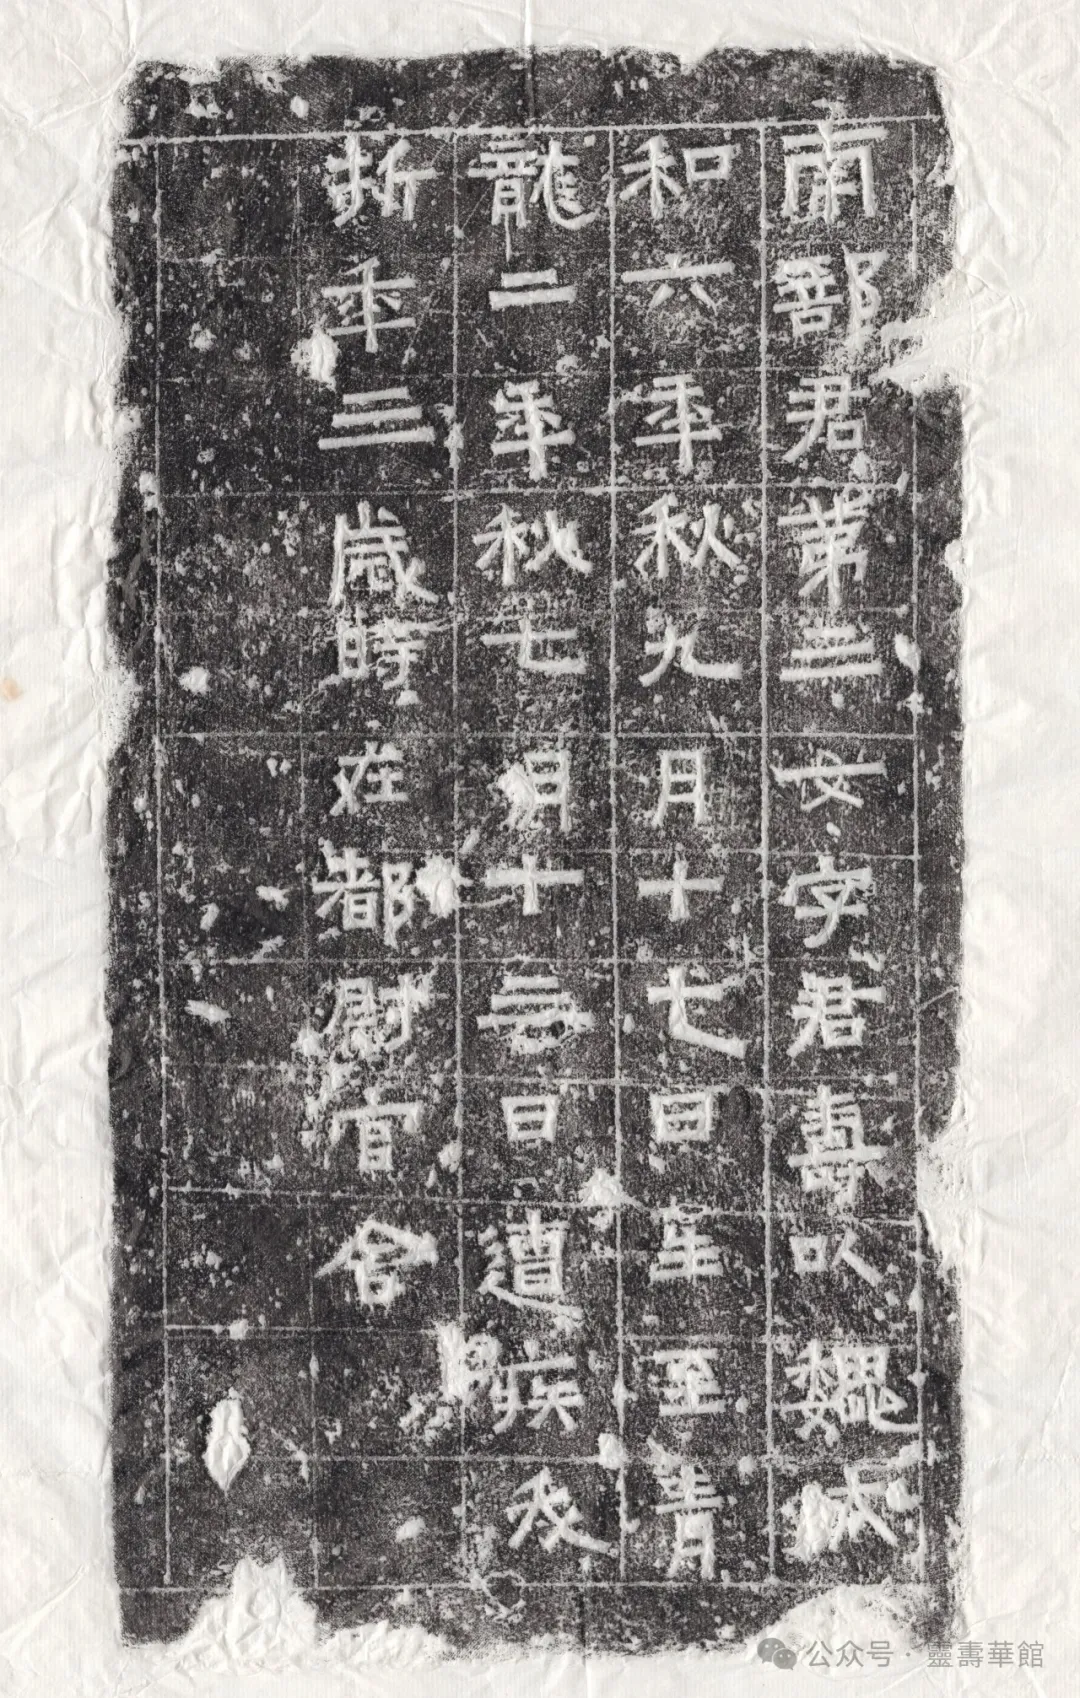 南部君第三女字君壽以魏太
和六年秋九月十七日生至青
龍二年秋七月十三日遭疾夭
折年三歲時在都尉官舍
公众号·靈壽華館